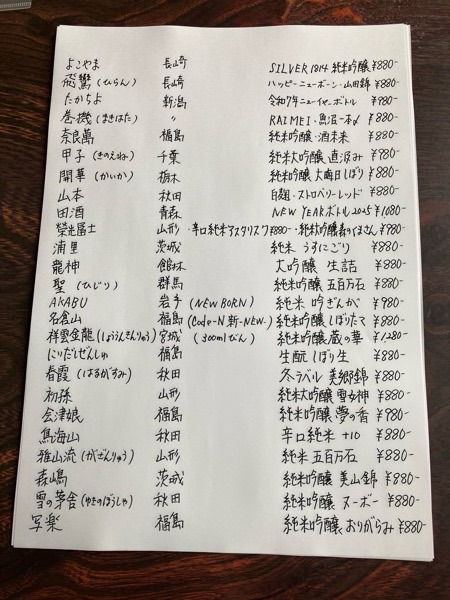 よこやま 長崎 SILVER 1814 純米吟醸 ¥880-
飛鸞(ひらん) 長崎 ハッピーニューボーン・山田錦 ¥880-
たかちよ 新潟 令和7年ニューイヤーボトル ¥980-
巻機(まきはた) 〃 RAIMEI・魚沼一本〆 ¥880-
奈良萬 福島 純米吟醸・酒未来 ¥880-
甲子(きのえね) 千葉 純米大吟醸 直汲み ¥980-
開華(かいか) 栃木 純米吟醸 大晦日しぼり ¥880-
山本 秋田 白麹・ストロベリーレッド ¥880-
田酒 青森 NEW YEARボトル2025 ¥1080-
榮光冨士 山形・辛口純米アスタリスク ¥880-・純米吟醸森のくまさん ¥980-
浦里 茨城 純米 うすにごり ¥880-
龍神 館林 大吟醸 生詰 ¥880-
聖(ひじり) 群馬 純米吟醸 五百万石 ¥880-
AKABU 岩手 (NEW BORN) 純米 吟ぎんが ¥980-
名倉山 福島 (Code-N 新-NEW-) 純米吟醸 しぼりたマ ¥880-
祥雲金龍(しょううんきんりゅう) 宮城 (300mlびん) 純米吟醸 蔵の華 ¥1280-
にいだしぜんしゅ 福島 生酛 しぼり生 ¥880-
春霞(はるがすみ) 秋田 冬ラベル 美郷錦 ¥880-
初孫 山形 純米大吟醸 雪女神 ¥880-
会津娘 福島 純米吟醸 夢の香 ¥980-
鳥海山 秋田 辛口純米 +10 ¥880-
雅山流(がざんりゅう) 山形 純米 五百万石 ¥880-
森嶋 茨城 純米吟醸 美山錦 ¥880-
雪の茅舎(ゆきのぼうしゃ) 秋田 純米吟醸 ヌーボー ¥880-
写楽 福島 純米吟醸 おりがらみ ¥880-